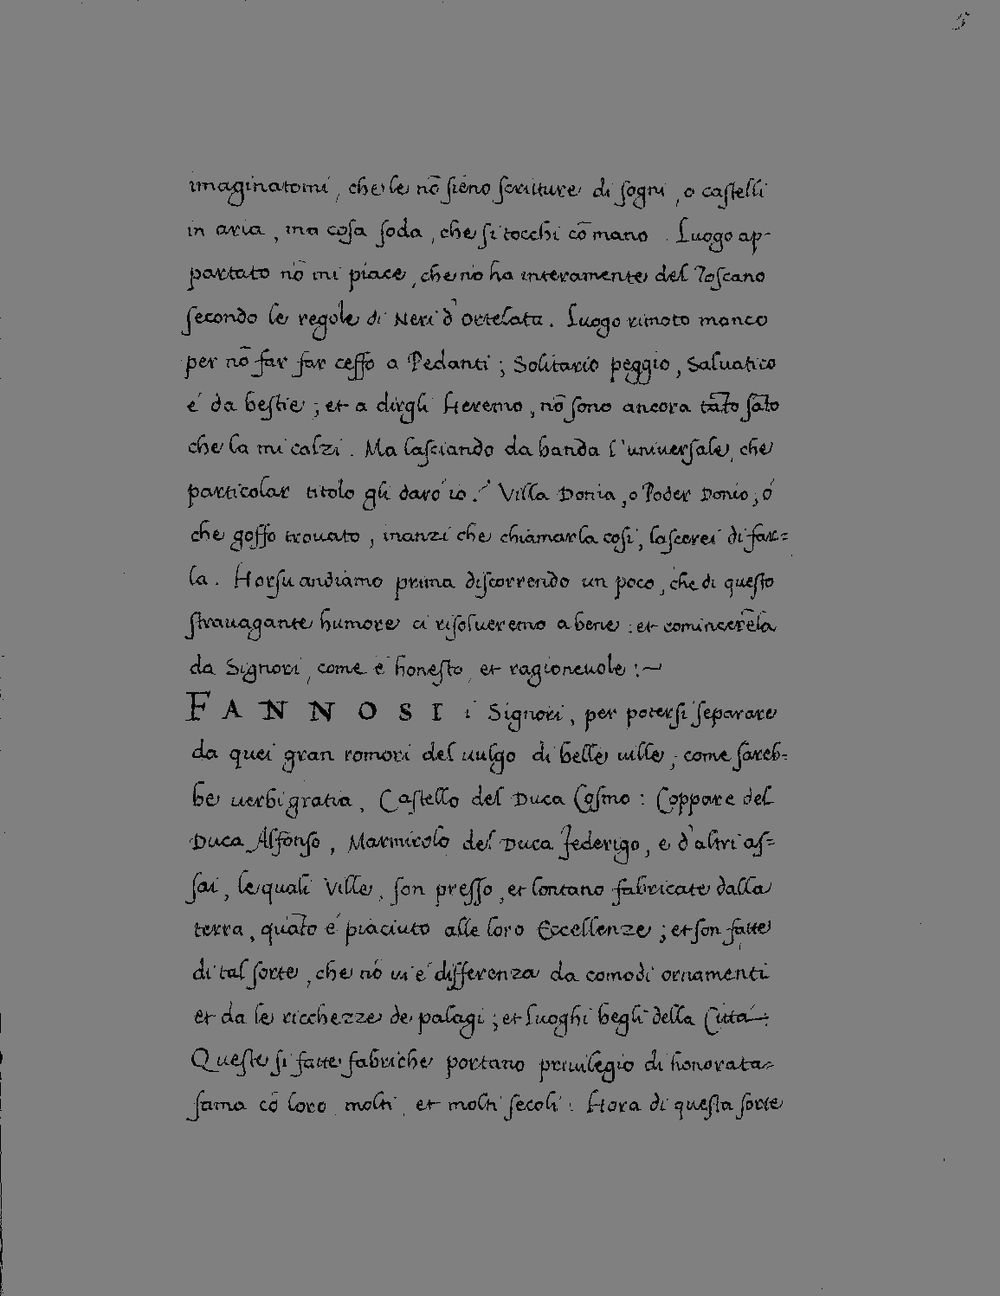 5
imaginatomi, che le nō sieno scritture di sogni, o castelli
in aria, ma cosa soda, che si tocchi cō mano. Luogo ap-
partato nō mi piace, che nō ha interamente del Toscano
secondo le regole di Neri d'Ortelata. Luogo rimoto manco
per nō far far ceffo a Pedanti; Solitario peggio, Saluatico
é da bestie; et a dirgli Heremo, nō sono ancora tāto sāto
che la mi calzi. Ma lasciando da banda l'uniuersale, che
particolar titolo gli darò io? Villa Donia, o Poder Donio, ó
che goffo trouato, inanzi che chiamarla cosi, lascerei di far=
la. Horsu andiamo prima discorrendo un poco, che di questo
strauagante humore ci risolueremo a bene: et comincerēla
da Signori, come é honesto, et ragioneuole:~
FANNOSI i Signori, per potersi separare
da quei gran romori del uulgo di belle uille; come sareb=
be uerbigratia, Castello del Duca Cosmo: Coppare del
Duca Alfonso, Marmirolo del Duca Federigo, e d'altri as=
sai, le quali Ville, son presso, et lontano fabricate dalla
terra, quāto é piaciuto alle loro Eccellenze; et son fatte
di tal sorte, che nō ui é differenza da comodi ornamenti
et da le ricchezze de palagi; et luoghi begli della Cittá:
Queste si fatte fabriche portano priuilegio di honorata
fama cō loro molti, et molti secoli: Hora di questa sorte